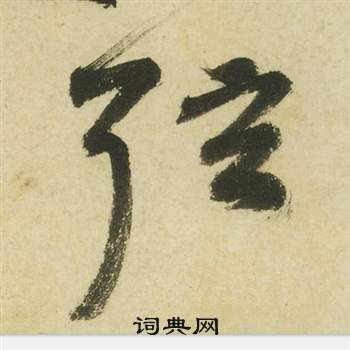 弦
词典网